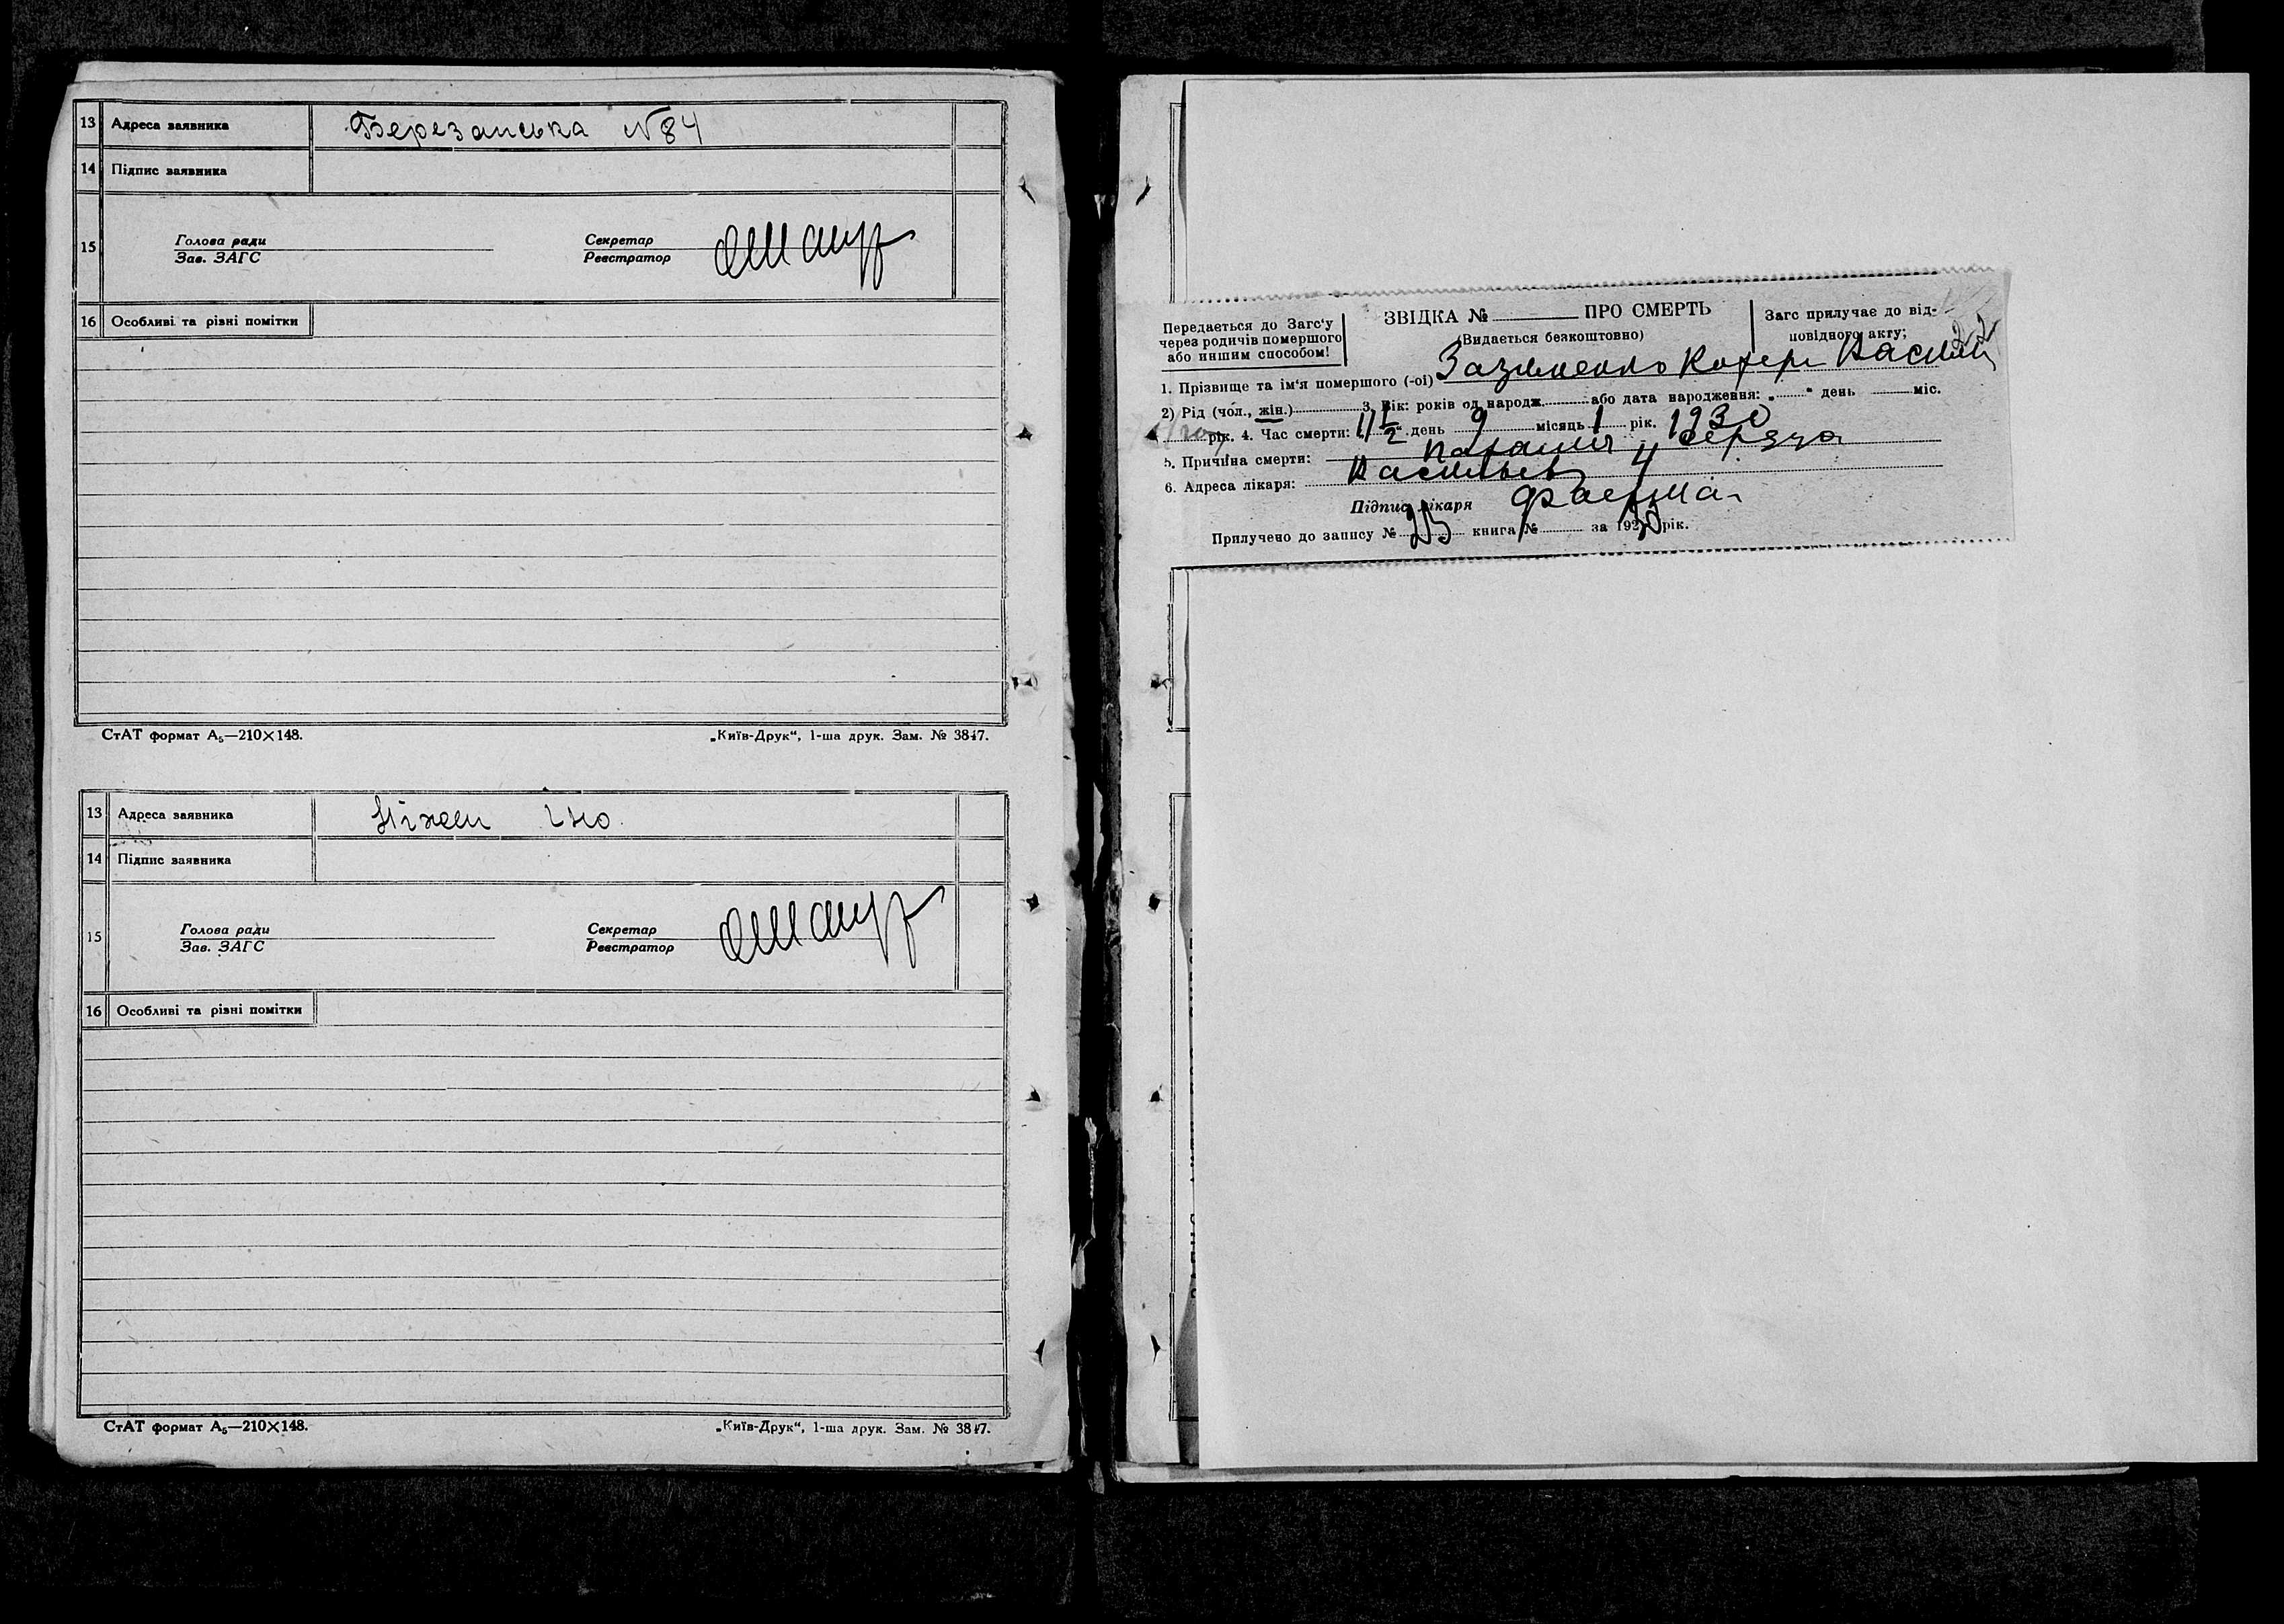 13 Адреса заявника Березанська №84
14 Підпис заявника
15 Голова ради Секретар
Зав. ЗАГС Реєстратор
16 Особливі та різні помітки
СтАТ формат А₅—210×148. „Київ-Друк“, 1-ша друк. Зам. № 3847.
13 Адреса заявника Ніжен Іно
14 Підпис заявника
15 Голова ради Секретар
Зав. ЗАГС Реєстратор
16 Особливі та різні помітки
СтАТ формат А₅—210×148. „Київ-Друк“, 1-ша друк. Зам. № 3847.
Передається до Загс'у
через родичів помершого
або иншим способом!
ЗВІДКА № ПРО СМЕРТЬ
(Видається безкоштовно)
Загс прилучає до від-
повідного акту;
1. Прізвище та ім'я помершого (-ої) Зазименко Катер Васил
2) Рід (чол., жін.) 3. Вік: років од народж. або дата народження: „ “ день міс.
рік. 4. Час смерти: 11 1/2 день 9 місяць 1 рік. 1930
5. Причина смерти: сердца
6. Адреса лікаря: Васильев 4
Підпис лікаря
Прилучено до запису № 25 книга № за 1930 рік.